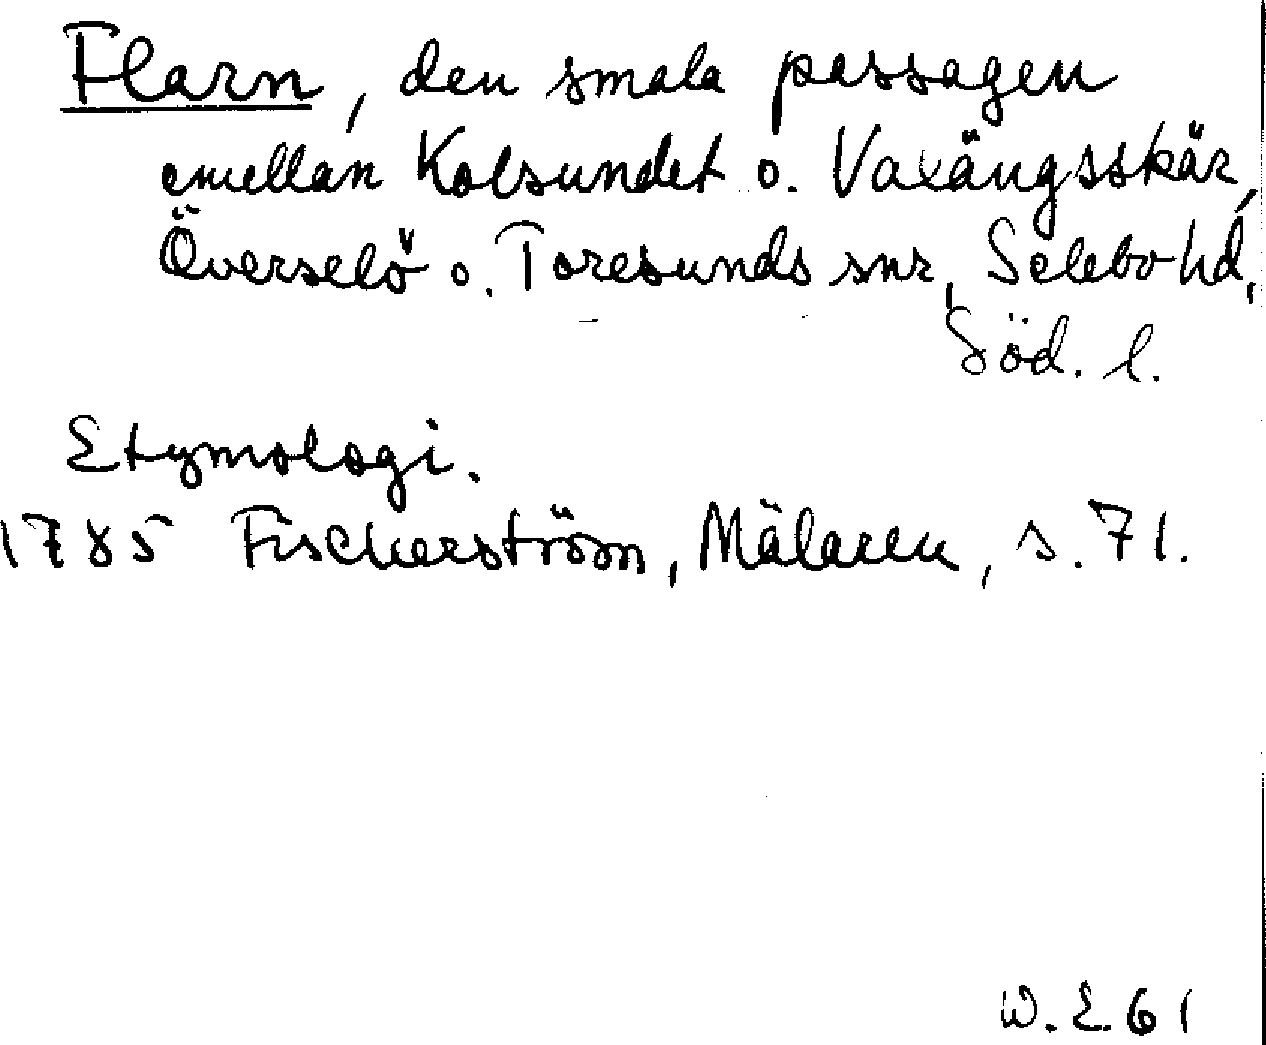 Flarn, den smala passagen
emellan Kolsundet o. Vaxängsskär,
Överselö o. Toresunds snr, Selebo hd,
Söd. l.
Etymologi.
1785 Fischerström, Mälaren, s. 71.
W. E. 61